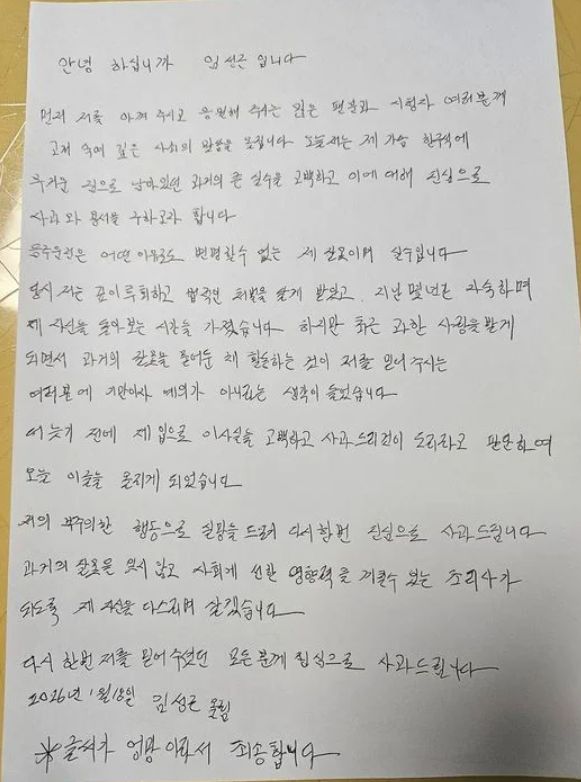 안녕 하십니까 임성근 입니다
먼저 저를 아껴 주시고 응원해 주시는 많은 팬분과 시청자 여러분께
고개 숙여 깊은 사죄의 말씀을 올립니다 오늘 저는 제 가슴 한구석에
무거운 짐으로 남아있던 과거의 큰 실수를 고백하고 이에 대해 진심으로
사과와 용서를 구하고자 합니다
음주운전은 어떤 이유로도 변명할수 없는 제 잘못이며 실수입니다
당시 저는 깊이 후회하고 법적인 처벌을 달게 받았고, 지난 몇년간 자숙하며
제 자신을 돌아보는 시간을 가졌습니다 하지만 최근 과한 사랑을 받게
되면서 과거의 잘못을 묻어둔 채 활동하는 것이 저를 믿어 주시는
여러분에 기만이자 예의가 아니라는 생각이 들었습니다
더 늦기 전에 제 입으로 이사실을 고백하고 사과드리것이 도리라고 판단하여
오늘 이글을 올리게 되었습니다
저의 부주의한 행동으로 실망을 드려 다시한번 진심으로 사과드립니다
과거의 잘못을 잊지 않고 사회에 선한 영향력을 끼칠수 있는 조리사가
되도록 제 자신을 다스리며 살겠습니다
다시 한번 저를 믿어주셨던 모든분께 진심으로 사과드립니다
2026년 1월 18일 임성근 올림
*글씨가 엉망이라서 죄송합니다